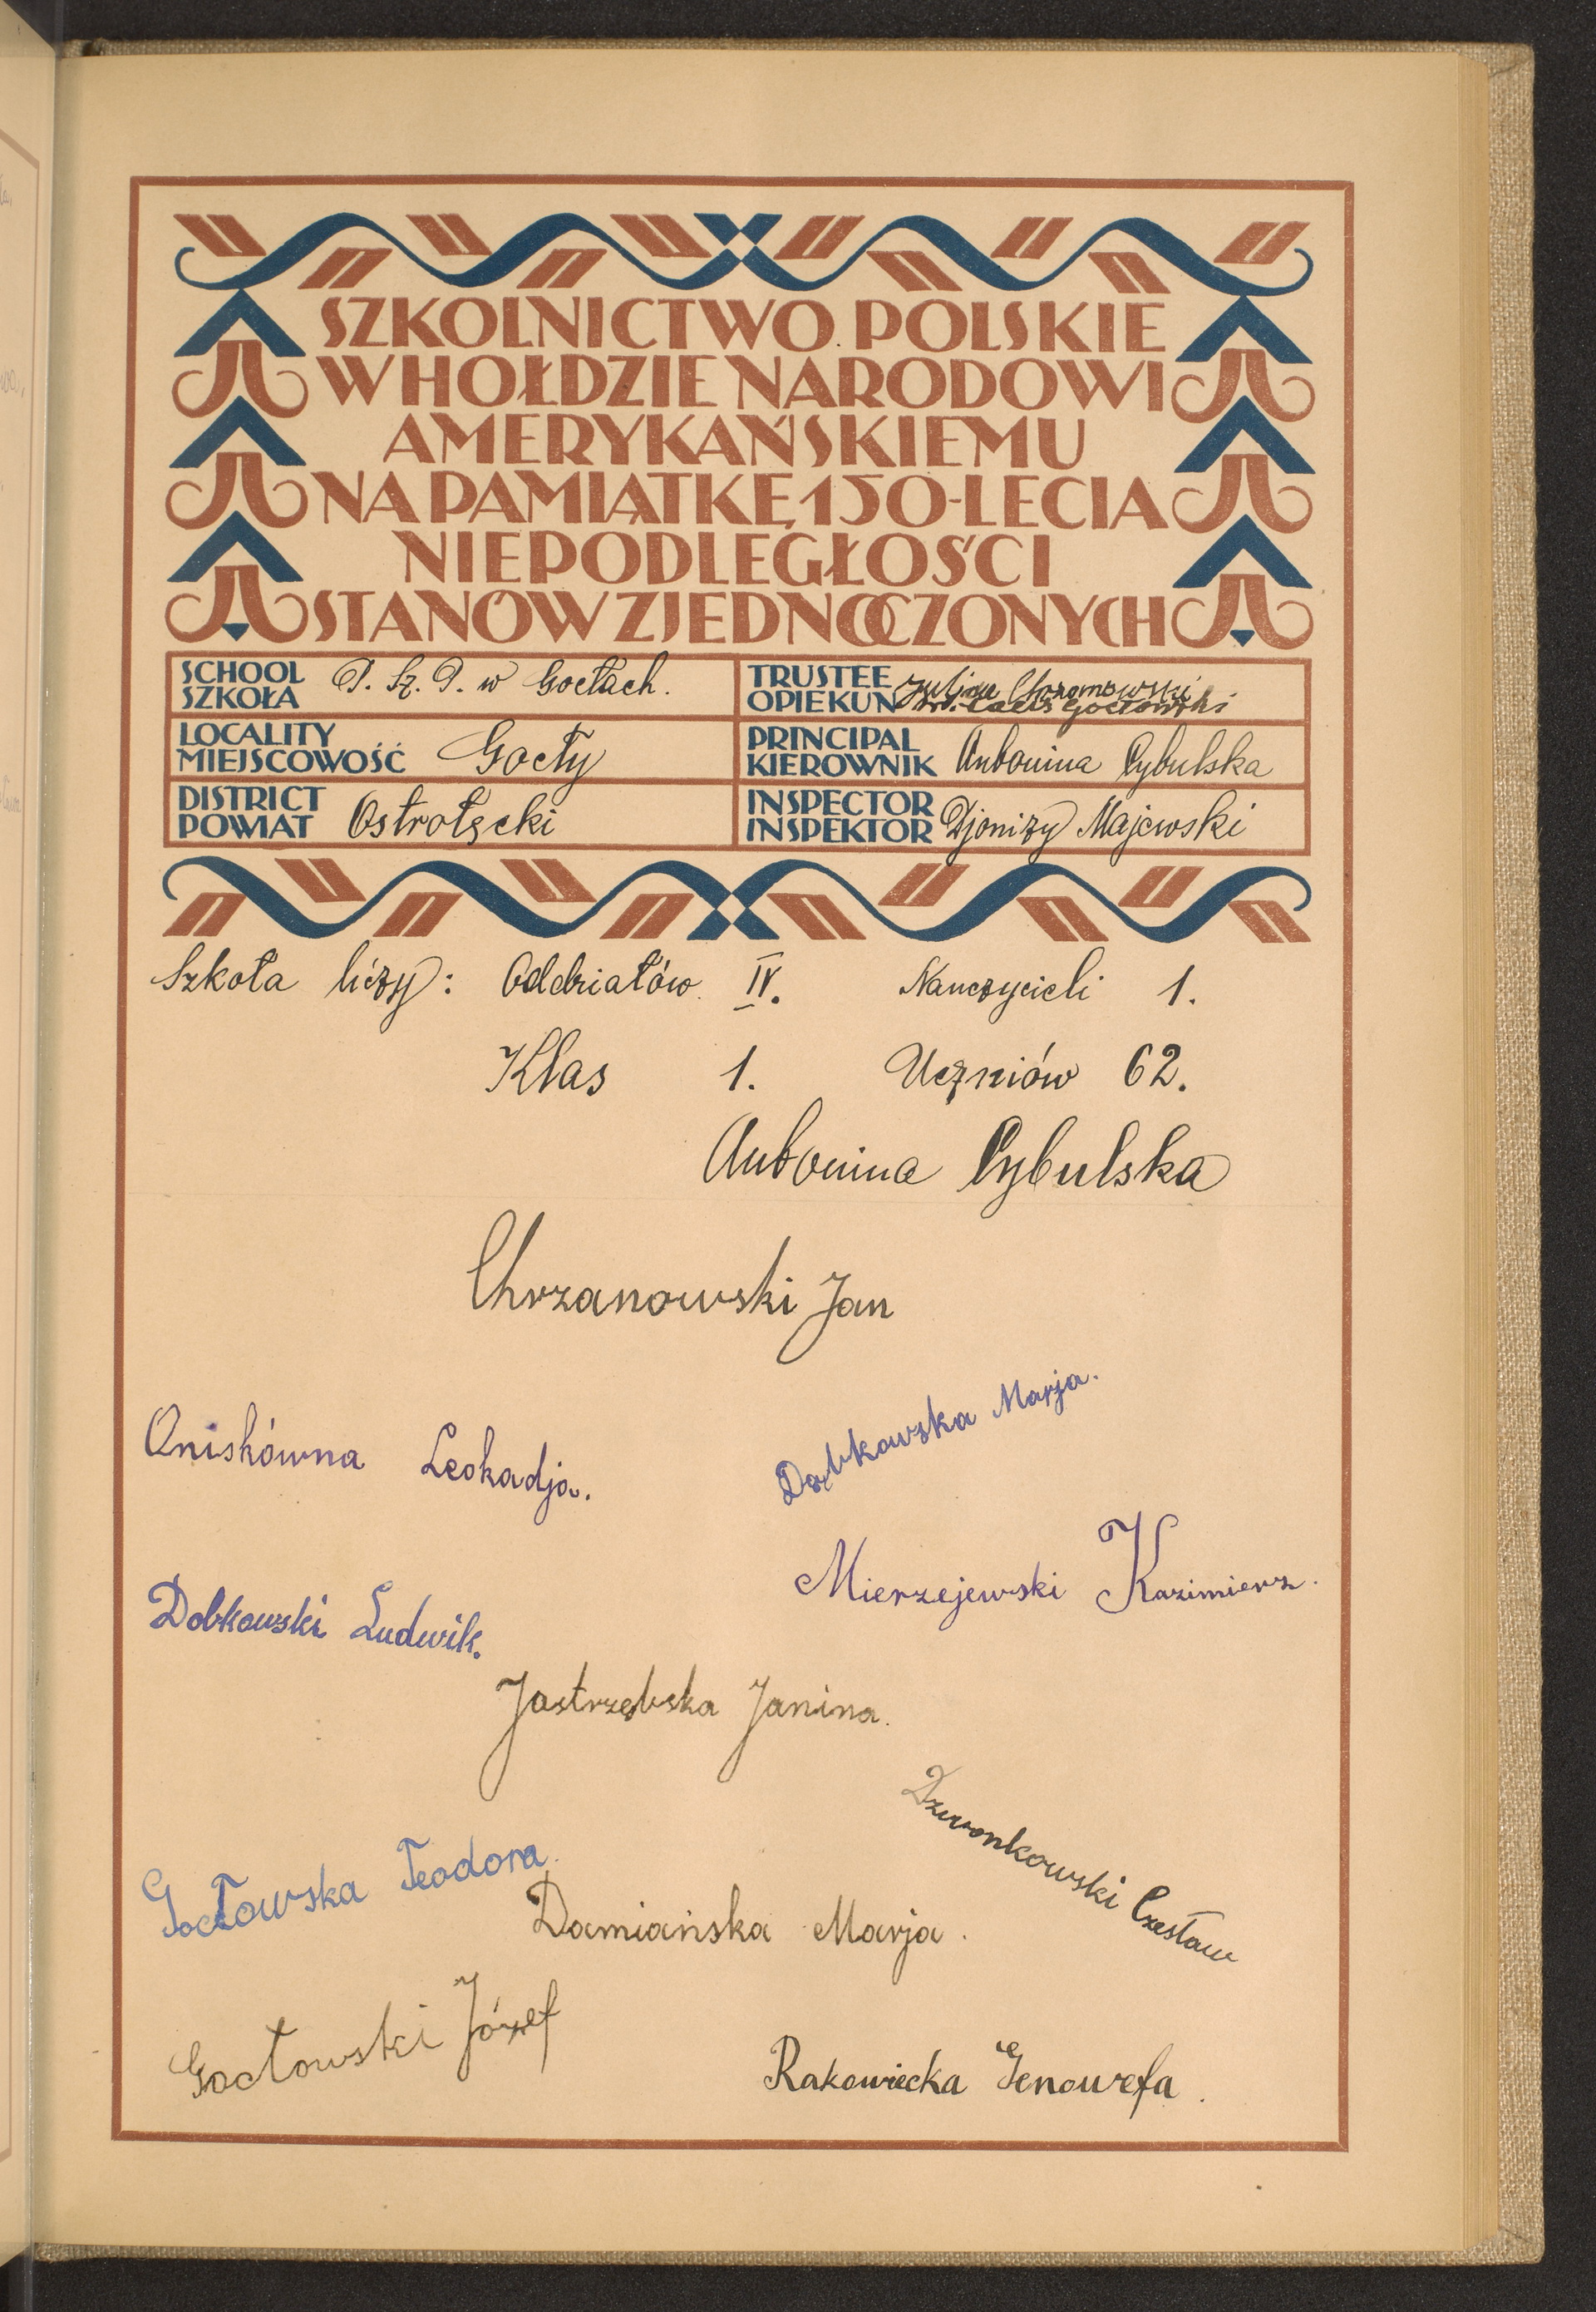 SZKOLNICTWO POLSKIE
W HOŁDZIE NARODOWI
AMERYKAŃSKIEMU
NA PAMIĄTKĘ 150-LECIA
NIEPODLEGŁOŚCI
STANÓW ZJEDNOCZONYCH
SCHOOL
SZKOŁA P. Sz. P. w Gocłach.
TRUSTEE
OPIEKUN Gocłowski
LOCALITY
MIEJSCOWOŚĆ Gocły
PRINCIPAL
KIEROWNIK Antonina Cybulska
DISTRICT
POWIAT Ostrołęcki
INSPECTOR
INSPEKTOR Djonizy Majewski
Szkoła liczy: Oddziałów IV. Nauczycieli 1.
Klas 1. Uczniów 62.
Antonina Cybulska
Chrzanowski Jan
Dąbkowska Marja.
Oniskówna Leokadja.
Mierzejewski Kazimierz.
Dobkowski Ludwik.
Jastrzębska Janina.
Dzwonkowski Czesław
Gocłowska Teodora.
Damiańska Marja.
Gocłowski Józef
Rakowiecka Genowefa.